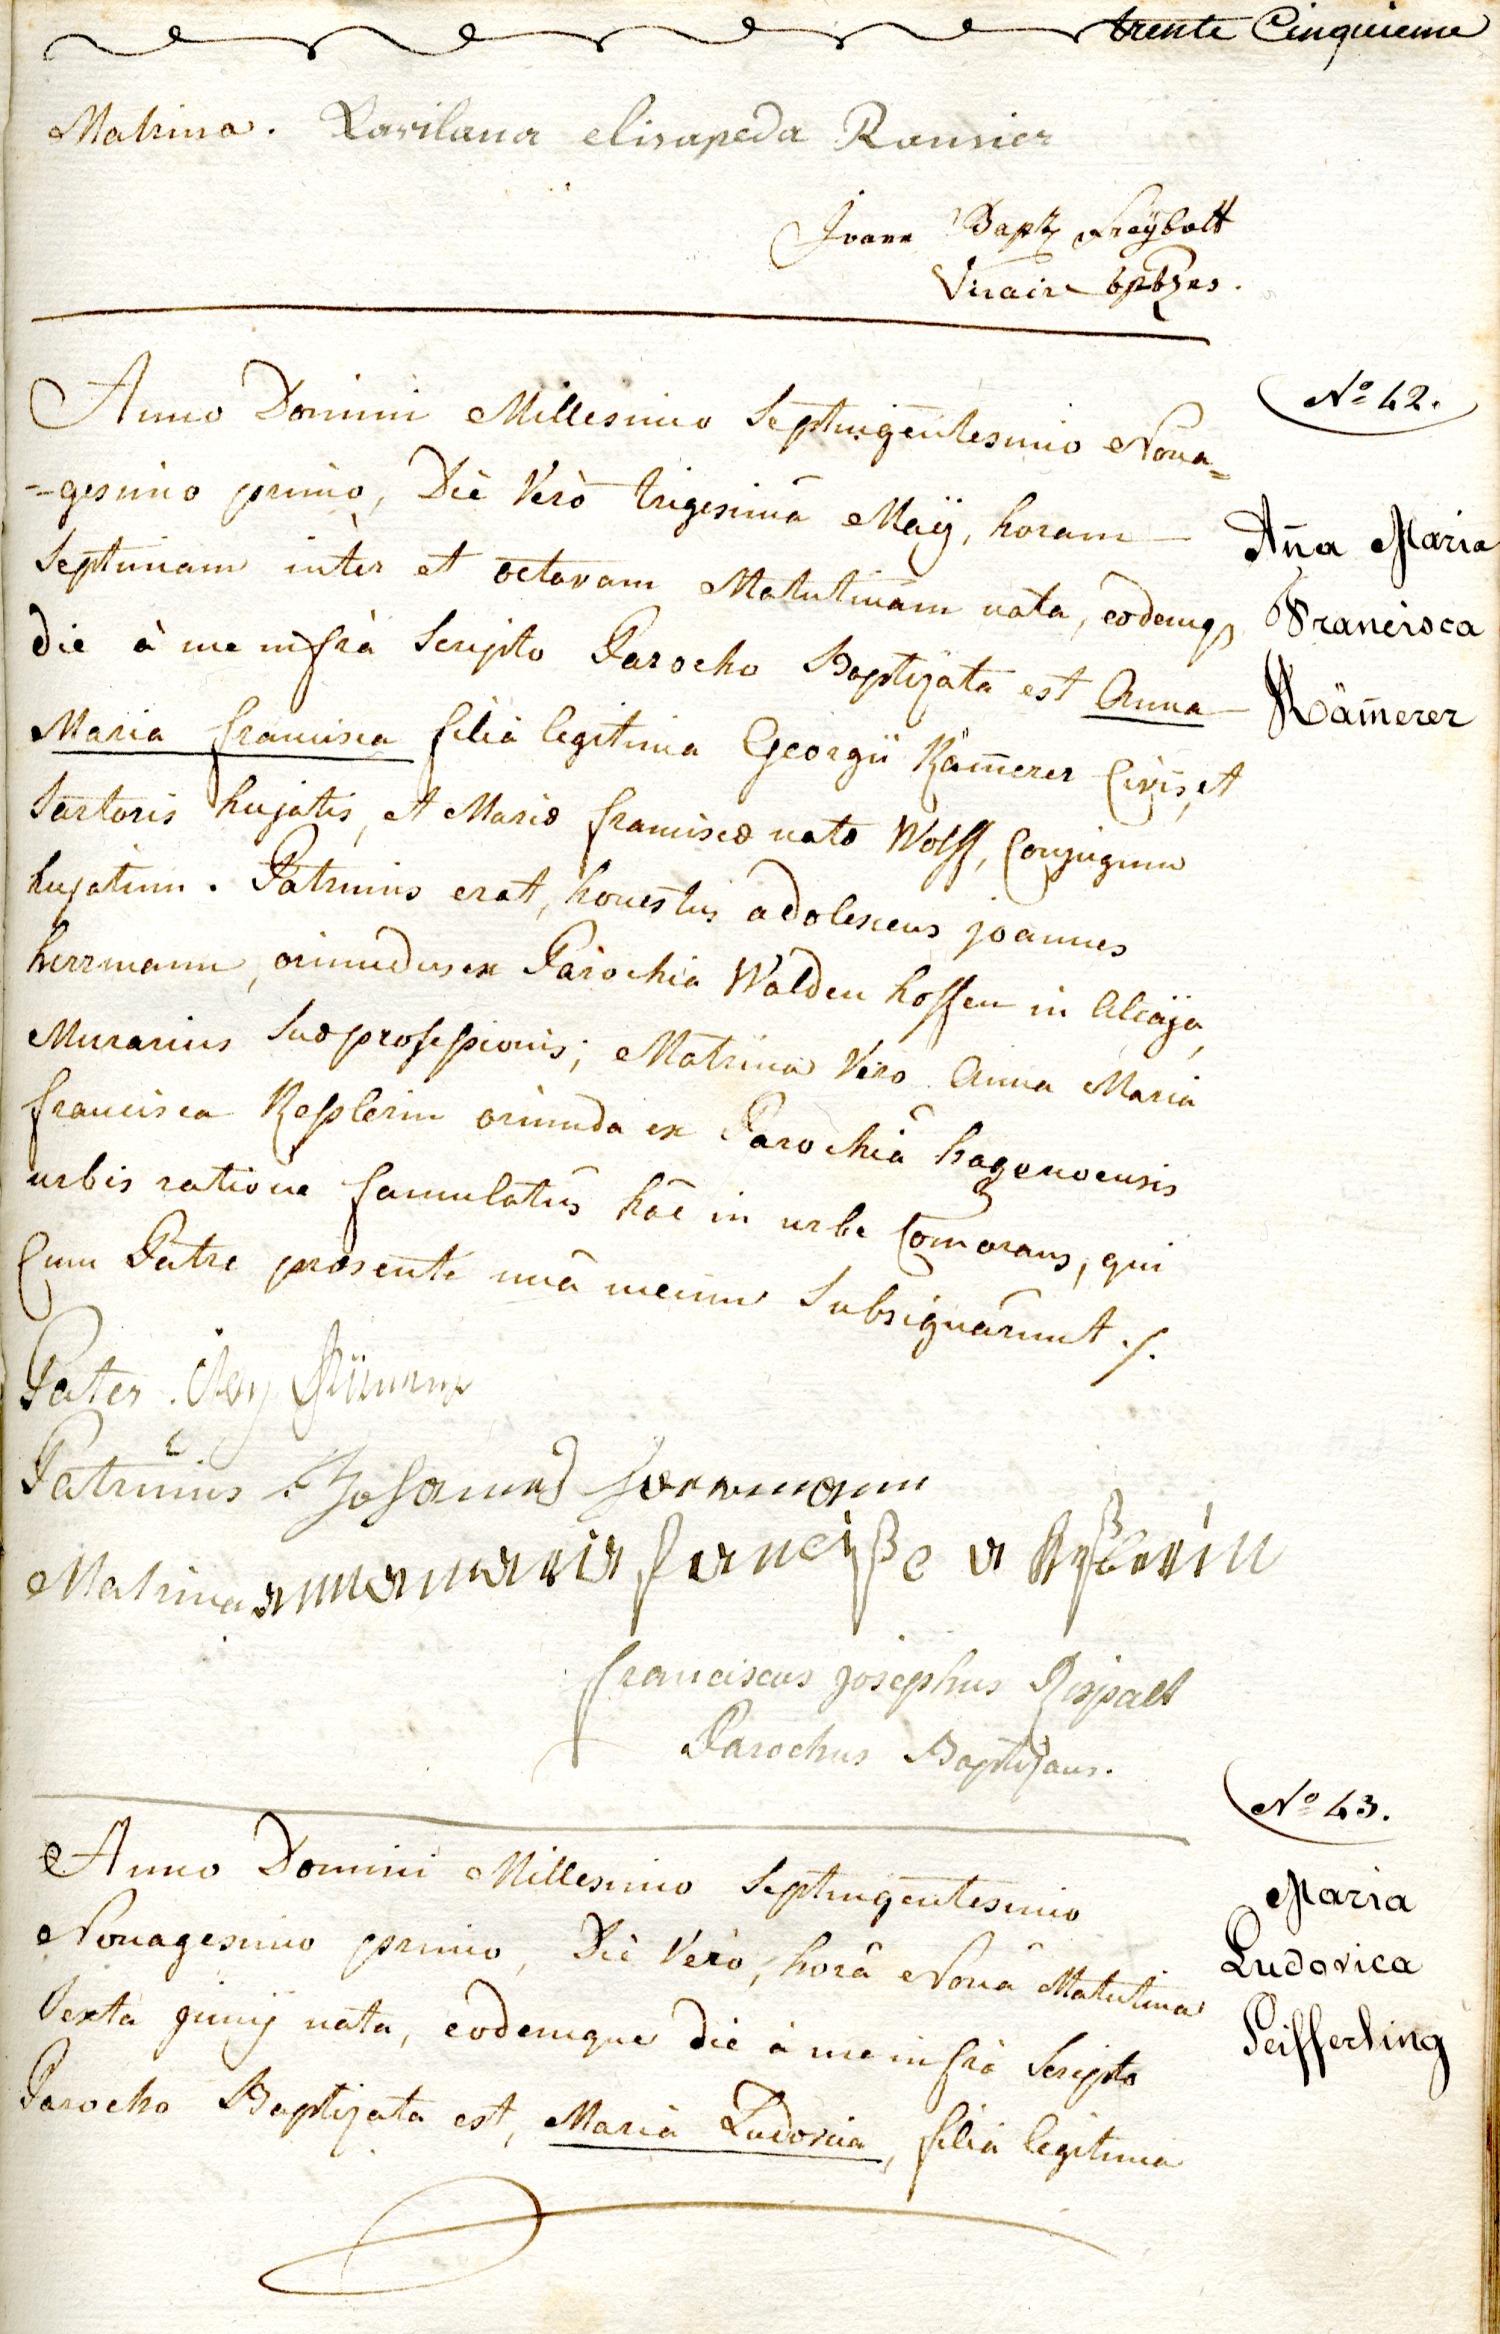 trente Cinquieme
Matrina. Karilana elisapeda Ransier
Joann Bapt Freÿbott
Vicair bptzns.
Nº 42.
Anno Domini Millesimo Septuigentesimo Nona=
=gesimo primo, Die Verò trigesimâ Maÿ, horam
Septimam inter et octavam Matutinam nata, eodemq
die à me infrà Scripto Parocho Baptizata est Anna
Maria francisca filia legitima Georgii Käm̄erer Civis, et
Sartoris hujatis, et Mariæ franciscæ natæ Wolff, Conjugum
hujatium. Patrinus erat, honestus adolescens joannes
herrmann, oriundus ex Parochia Walden hoffen in Alsaja,
Murarius Suæ professionis; Matrina Vero Anna Maria
francisca Kesslerin oriunda ex Parochiâ hagenoensis
urbis ratione famulatûs hâc in urbe Comorans, qui
Cum Patre præsente unâ mecum Subsignârunt ./.
Añna Maria
Francisca
Käm̄erer
Pater.
Patrinus Johannes herrmann
Matrina annamaria franciße a Keßlerin
franciscus josephus Rispalt
Parochus Baptizans.
Nº 43.
Anno Domini Millesimo Septuigentesimo
Nonagesimo primo, Die Vero, horâ Nonâ Matutina
Sexta junij nata, eodemque die à me infrà Scripto
Parocho Baptizata est, Maria Ludovica, filia legitima
Maria
Ludovica
Seifferling